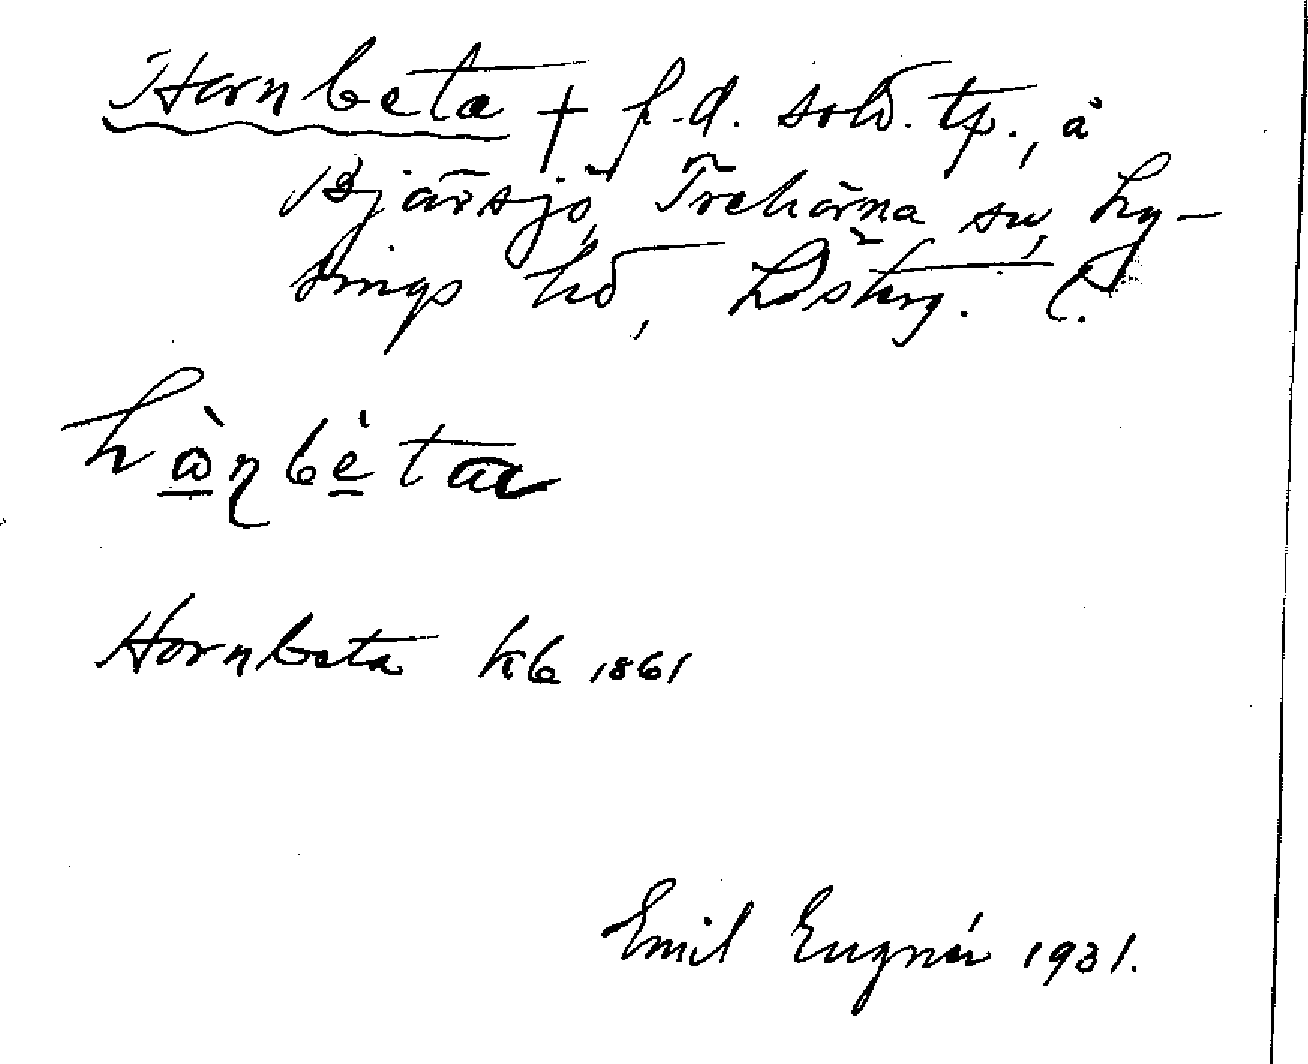 Hornbeta † f.d. sold. tp., å
Bjärsjö, Trehörna sn, Ly-
sings hd, Östrg.
hὼɳbèta
Hornbeta kb 1861
Emil Eugnér 1931.